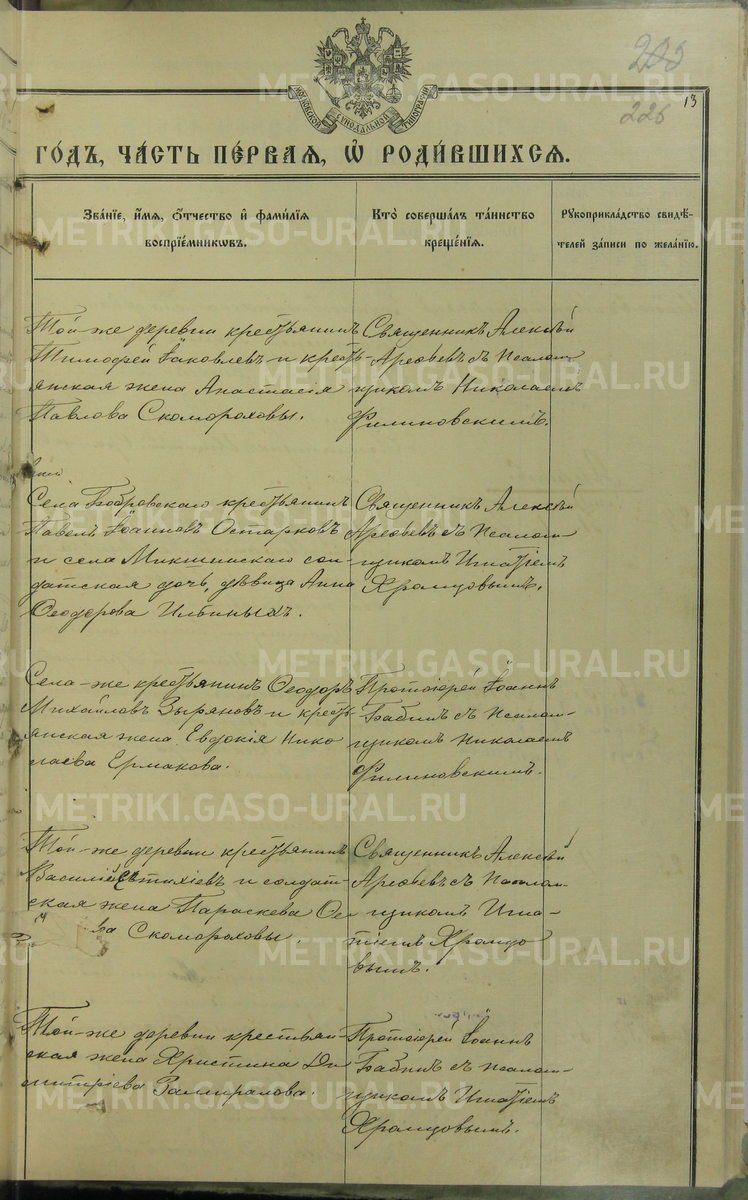 285
226
13
МОСКОВСКОЙ СѴНОДАЛЬНОЙ ТИПОГРАФІИ
ГО́ДЪ, ЧА́СТЬ ПЕ́РВАЯ, Ѡ҆ РОДИ́ВШИХСЯ.
Зва́нїе, и҆́мя, ѻ҆́тчество и҆ фами́лїя
воспрїе́мникѡвъ.
Кто̀ соверша́лъ та́инство
креще́нїя.
Рꙋкоприкла́дство свидѣ́-
телей за́писи по жела́нїю.
Той-же деревни крестьянинъ
Тимофей Іаковлевъ и кресть-
янская жена Анастасія
Павлова Скомороховы.
Священникъ Алексѣй
Арефьевъ съ псалом-
щикомъ Николаемъ
Филиновскимъ.
Села Бобровскаго крестьянинъ
Павелъ Іоанновъ Остарковъ
и села Микшинскаго сол-
датская дочь, дѣвица Анна
Ѳеодорова Ильиныхъ.
Священникъ Алексѣй
Арефьевъ съ псалом-
щикомъ Игнатіемъ
Храмцовымъ.
Села-же крестьянинъ Ѳеодоръ
Михайловъ Зыряновъ и кресть-
янская жена Евдокія Нико
лаева Ермакова.
Протоіерей Іоаннъ
Бабинъ съ псалом-
щикомъ Николаемъ
Филиновскимъ.
Той-же деревни крестьянинъ
Василій Евтихіевъ и солдат-
ская жена Параскева
ва Скомороховы.
Священникъ Алексѣй
Арефьевъ съ псалом-
щикомъ Игна-
тіемъ Храмцо
вымъ.
Той-же деревни крестьян-
ская жена Христина Ди
митріева Замиралова.
Протоіерей Іоаннъ
Бабинъ съ псалом-
щикомъ Игнатіемъ
Храмцовымъ.
METRIKI.GASO-URAL.RU